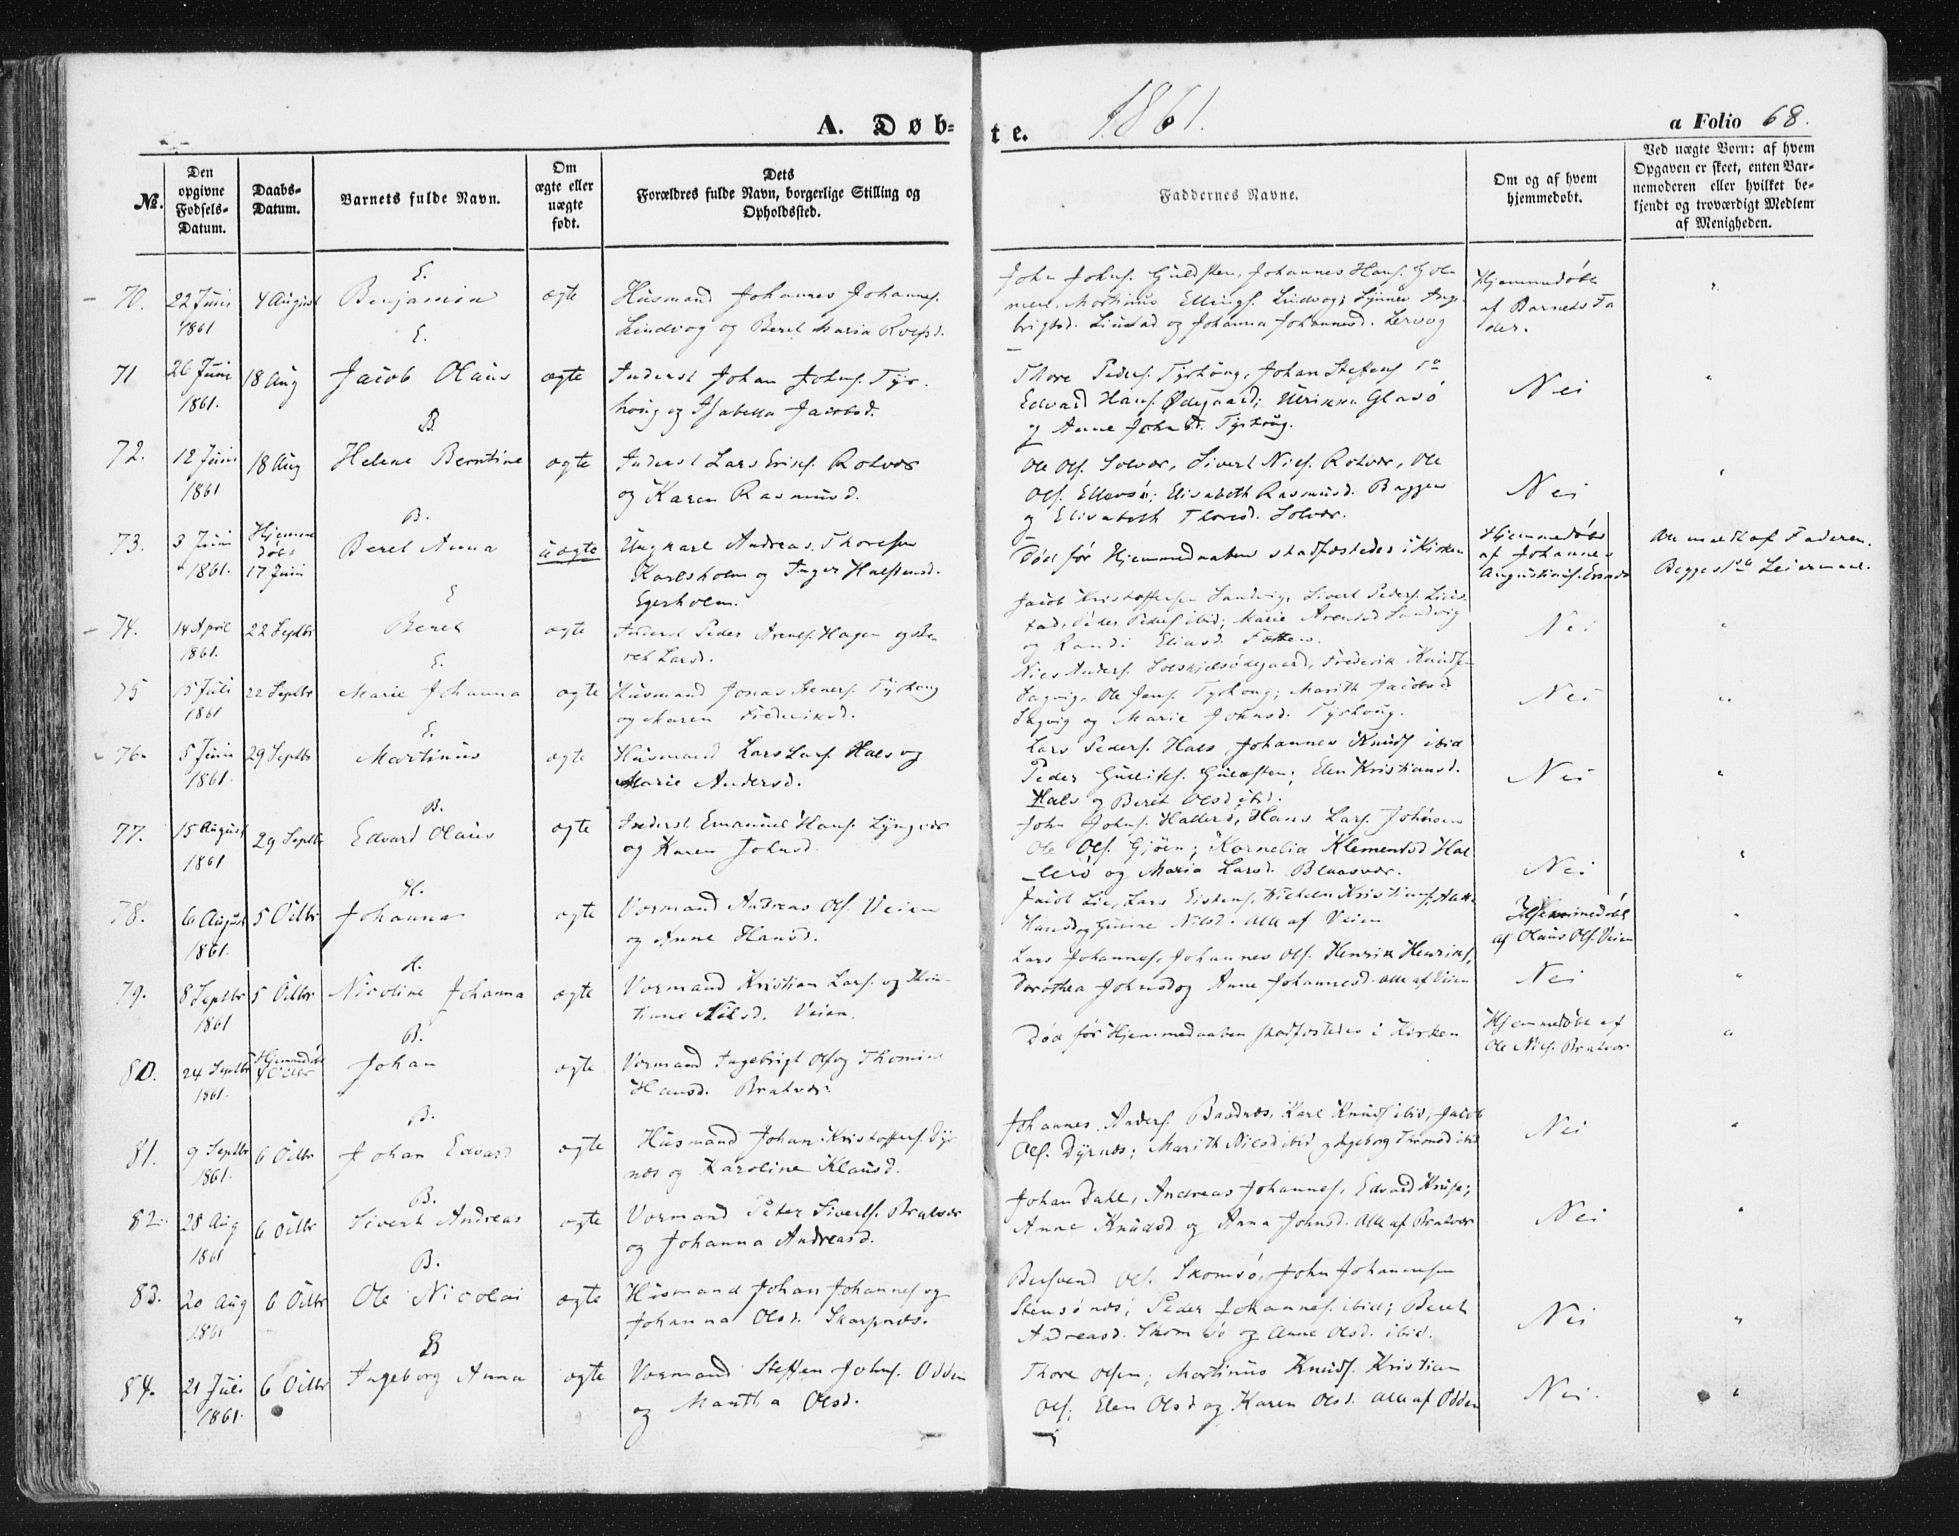 A. Døb-
te. 1861.
a Folio 68.
№.
Den opgivne Fødsels-Datum.
Daabs-Datum.
Barnets fulde Navn.
Om ægte eller uægte født.
Dets Forældres fulde Navn, borgerlige Stilling og Opholdssted.
Faddernes Navne.
Om og af hvem hjemmedøbt.
Ved uægte Børn: af hvem Opgaven er skeet, enten Barnemoderen eller hvilket bekjendt og troværdigt Medlem af Menigheden.
E.
70. 22 Juni 1861 4 August Benjamin ægte Husmand Johannes Johannes.
Lindvog og Beret Maria Roelsd.
John Johns. Guldsten, Johannes Hans.
Mortinus Ellings. Lindvog; Synnev Inge-
brigtsd. Liustad og Johanna Johannesd. Lervog
Hjemmedøbt
af Barnets Fa
der.
E.
71 26 Juni 1861. 18 Aug Jacob Olaus ægte Inderst Johan Johns. Tyr-
houg og Isabella Jacobsd.
Thore Peders. Tyrhoug, Johan Steffens do
Edvard Hans. Ødegaard; Ulrikka Glasø
og Anne Johnsd. Tyrhoug.
Nei
B.
72. 12 Juni 1861 18 Aug Helene Berntine ægte Inderst Lars Eriks. Rotvær
og Karen Rasmusd.
Ole Ols. Solvær, Sivert Niels. Rotvær, Ole
Ols. Ellevsø; Elisabeth Rasmusd. Bagøen
og Elisabeth Thoresd. Solvær.
Nei
B.
73. 3 Juni 1861. Hjemme
døbt
17 Juni
Beret Anna uægte Ungkarl Andreas Thoresen
Karlsholm og Inger Halstensd.
Egerholm.
Død før Hjemmedaaben stadfæstedes i Kirken
Hjemmedøbt
af Johannes
Augustinus.
Anmeldt af Faderen.
Begges 1ste Leiermaal.
E
74. 14 April 1861. 22 Septbr Beret ægte Inderst Peder Arents. Hagen og Be-
ret Larsd.
Jacob Kristoffersen Sandvig, Sivert Peders. Lius-
tad, Peder Peders ibid; Marie Arentsd Sandvig
og Randi Eliasd. Fætten.
Nei
E.
75 15 Juli 1861 22 Septbr Marie Johanna ægte Husmand Jonas Aners. Tyrhoug
og Maren Frederiksd.
Niels Anders. Solskjelsødegaard, Frederik Knuds
Sagvig, Ole Jens. Tyrhoug; Marith Jacobsd
Sagvig og Marie Johnsd. Tyrhoug.
Nei
E.
76. 5 Juni 1861. 29 Septbr Martinus ægte Husmand Lars Lars. Hals og
Marie Andersd.
Lars Peders. Hals, Johannes Knuds ibid
Peder Gulliks. Gulosten; Elen Kristiansd.
Hals og Beret Olsd ibid.
Nei
B.
77. 15 August 1861 29 Septbr Edvard Olaus ægte Inderst Emanuel Hans. Lyngvær
og Karen Johnsd.
John Johns. Hallerø, Hans Lars.
Ole Ols. Gjøen; Kornelia Klementsd Hal-
lerø og Maria Larsd. Blaasvær.
Nei
H.
78. 6 August 1861. 5 Octbr Johanna ægte Vormand Andreas Ols. Veien
og Anne Hansd.
Jacob Lie, Lars Eistens, Wilhelm Kristians,
Hansd og Gurine Nilsd. Alle af Veien
Hjemmedøbt
af Olaus Ols. Veien
H.
79. 8 Septbr 1861 5 Octbr Nicoline Johanna ægte Vormand Kristian Lars. og Kris-
tinne Nilsd. Veien.
Lars Johannes, Johannes Ols. Henrik Henriks,
Dorothea Johnsd og Anne Johannesd. Alle af Veien
Nei
B.
80. 24 Septbr 1861. Hjemmedøbt
Octbr
Johan ægte Vormand Ingebrigt Ols og Thomine
Hansd. Bratvær.
Død før Hjemmedaaben stadfæstedes i Kirken
Hjemmedøbt af
Ole Niels. Bratvær
B.
81. 9 Septbr 1861. 6 Octbr Johan Edvard ægte Husmand Johan Kristoffers. Dyr
næs og Karoline Klausd.
Johannes Anders. Baadnæs, Karl Knuds ibid, Jacob
Ols. Dyrnæs; Marith Nilsd ibid og Ingeborg Thronsd ibid
Nei
B.
82. 28 Aug 1861 6 Octbr Sivert Andreas ægte Vormand Peter Siverts. Bratvær
og Johanna Andreasd.
Johan Dahl, Andreas Johannes, Edvard Kruse;
Anne Knudsd og Anna Johnsd. Alle af Bratvær
Nei
B.
83. 20 Aug 1861 6 Octbr Ole Nicolai ægte Husmand Johan Johannes og
Johanna Olsd. Skarpnæs.
Bersvend Ols. Skomsø, John Johannesen
Stensønæs, Peder Johannes. ibid; Beret
Andreasd. Skomsø og Anne Olsd. ibid.
Nei
B
84. 21 Juli 1861. 6 Octbr Ingeborg Anna ægte Vormand Steffen Johns. Odden
og Martha Olsd.
Thore Olsen; Mortinus Knuds. Kristian
Ols; Elen Olsd og Karen Olsd. Alle af Odden
Nei.